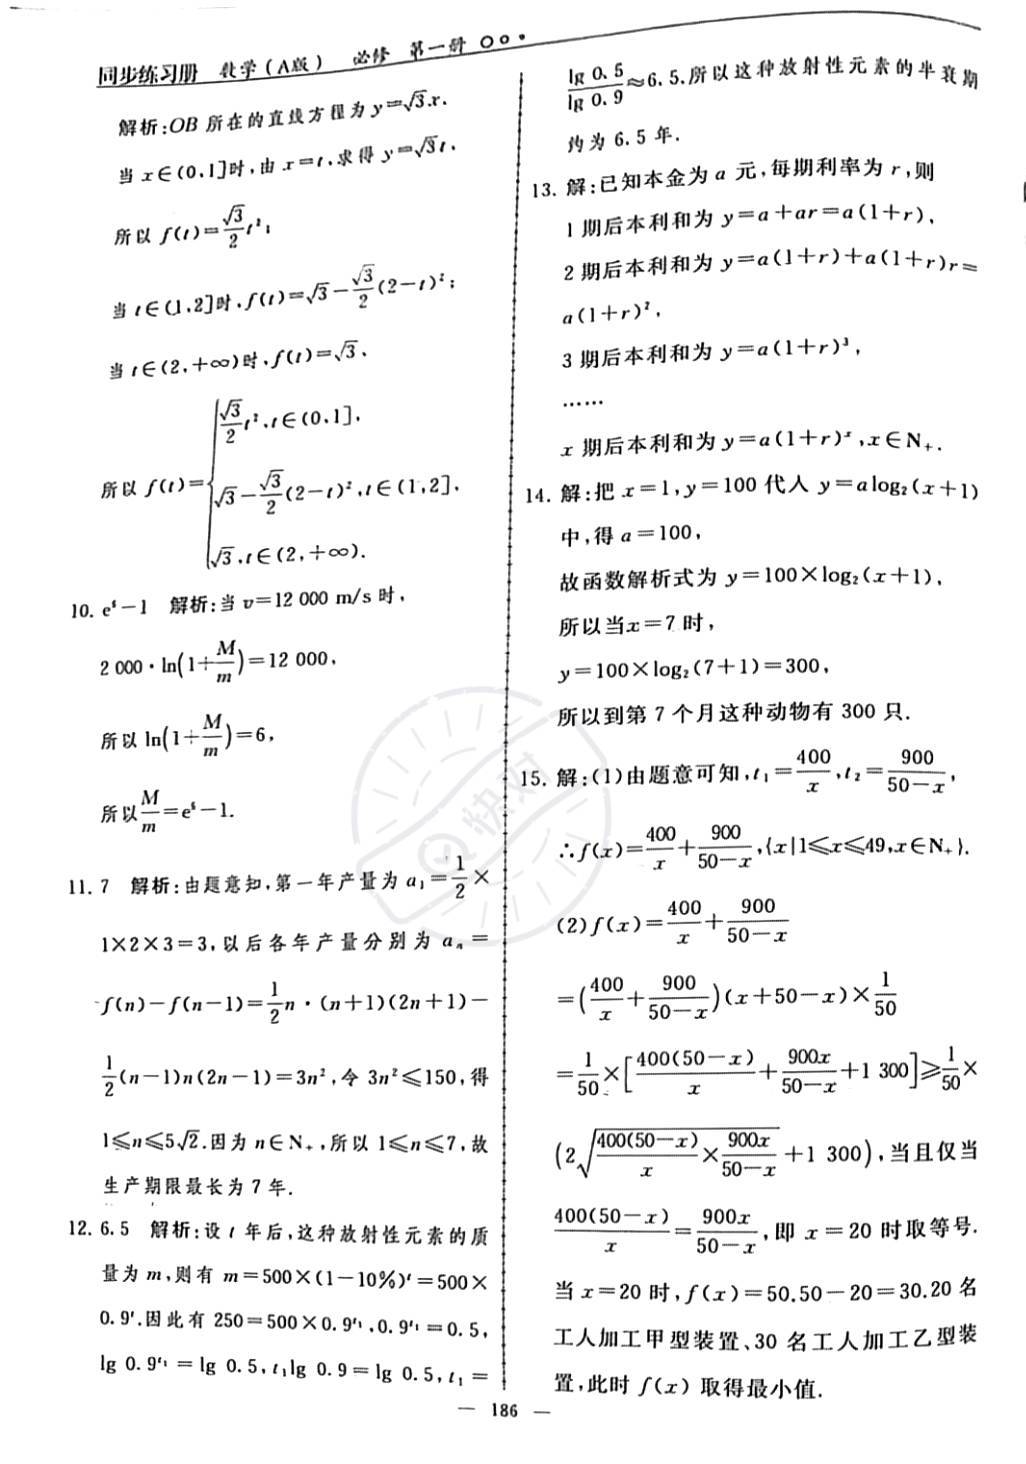 同步练习册 数学(A版) 必修 第一册
解析:OB 所在的直线方程为 y=√3x.
当 x∈(0,1]时,由 x=t,求得 y=√3t,
所以 f(t)=√3/2 t²;
当 t∈(1,2]时,f(t)=√3-√3/2(2-t)²;
当 t∈(2,+∞)时,f(t)=√3,
√3/2 t²,t∈(0,1],
所以 f(t)={√3-√3/2(2-t)²,t∈(1,2],
√3,t∈(2,+∞).
10. e⁶-1 解析:当 v=12 000 m/s 时,
2 000·ln(1+M/m)=12 000,
所以 ln(1+M/m)=6,
所以 M/m=e⁶-1.
11. 7 解析:由题意知,第一年产量为 a₁=1/2×
1×2×3=3,以后各年产量分别为 aₙ=
f(n)-f(n-1)=1/2n·(n+1)(2n+1)-
1/2(n-1)n(2n-1)=3n²,令 3n²≤150,得
1≤n≤5√2.因为 n∈N₊,所以 1≤n≤7,故
生产期限最长为 7 年.
12. 6.5 解析:设 t 年后,这种放射性元素的质
量为 m,则有 m=500×(1-10%)ᵗ=500×
0.9ᵗ.因此有 250=500×0.9^t₁,0.9^t₁=0.5,
lg 0.9^t₁=lg 0.5,t₁lg 0.9=lg 0.5,t₁=
lg 0.5/lg 0.9≈6.5.所以这种放射性元素的半衰期
约为 6.5 年.
13. 解:已知本金为 a 元,每期利率为 r,则
1 期后本利和为 y=a+ar=a(1+r),
2 期后本利和为 y=a(1+r)+a(1+r)r=
a(1+r)²,
3 期后本利和为 y=a(1+r)³,
……
x 期后本利和为 y=a(1+r)ˣ,x∈N₊.
14. 解:把 x=1,y=100 代人 y=alog₂(x+1)
中,得 a=100,
故函数解析式为 y=100×log₂(x+1),
所以当x=7 时,
y=100×log₂(7+1)=300,
所以到第 7 个月这种动物有 300 只.
15. 解:(1)由题意可知,t₁=400/x,t₂=900/(50-x),
∴f(x)=400/x+900/(50-x),{x|1≤x≤49,x∈N₊}.
(2)f(x)=400/x+900/(50-x)
=(400/x+900/(50-x))(x+50-x)×1/50
=1/50×[400(50-x)/x+900x/(50-x)+1 300]≥1/50×
(2√(400(50-x)/x×900x/(50-x))+1 300),当且仅当
400(50-x)/x=900x/(50-x),即 x=20 时取等号.
当 x=20 时,f(x)=50.50-20=30.20 名
工人加工甲型装置、30 名工人加工乙型装
置,此时 f(x) 取得最小值.
— 186 —
快对